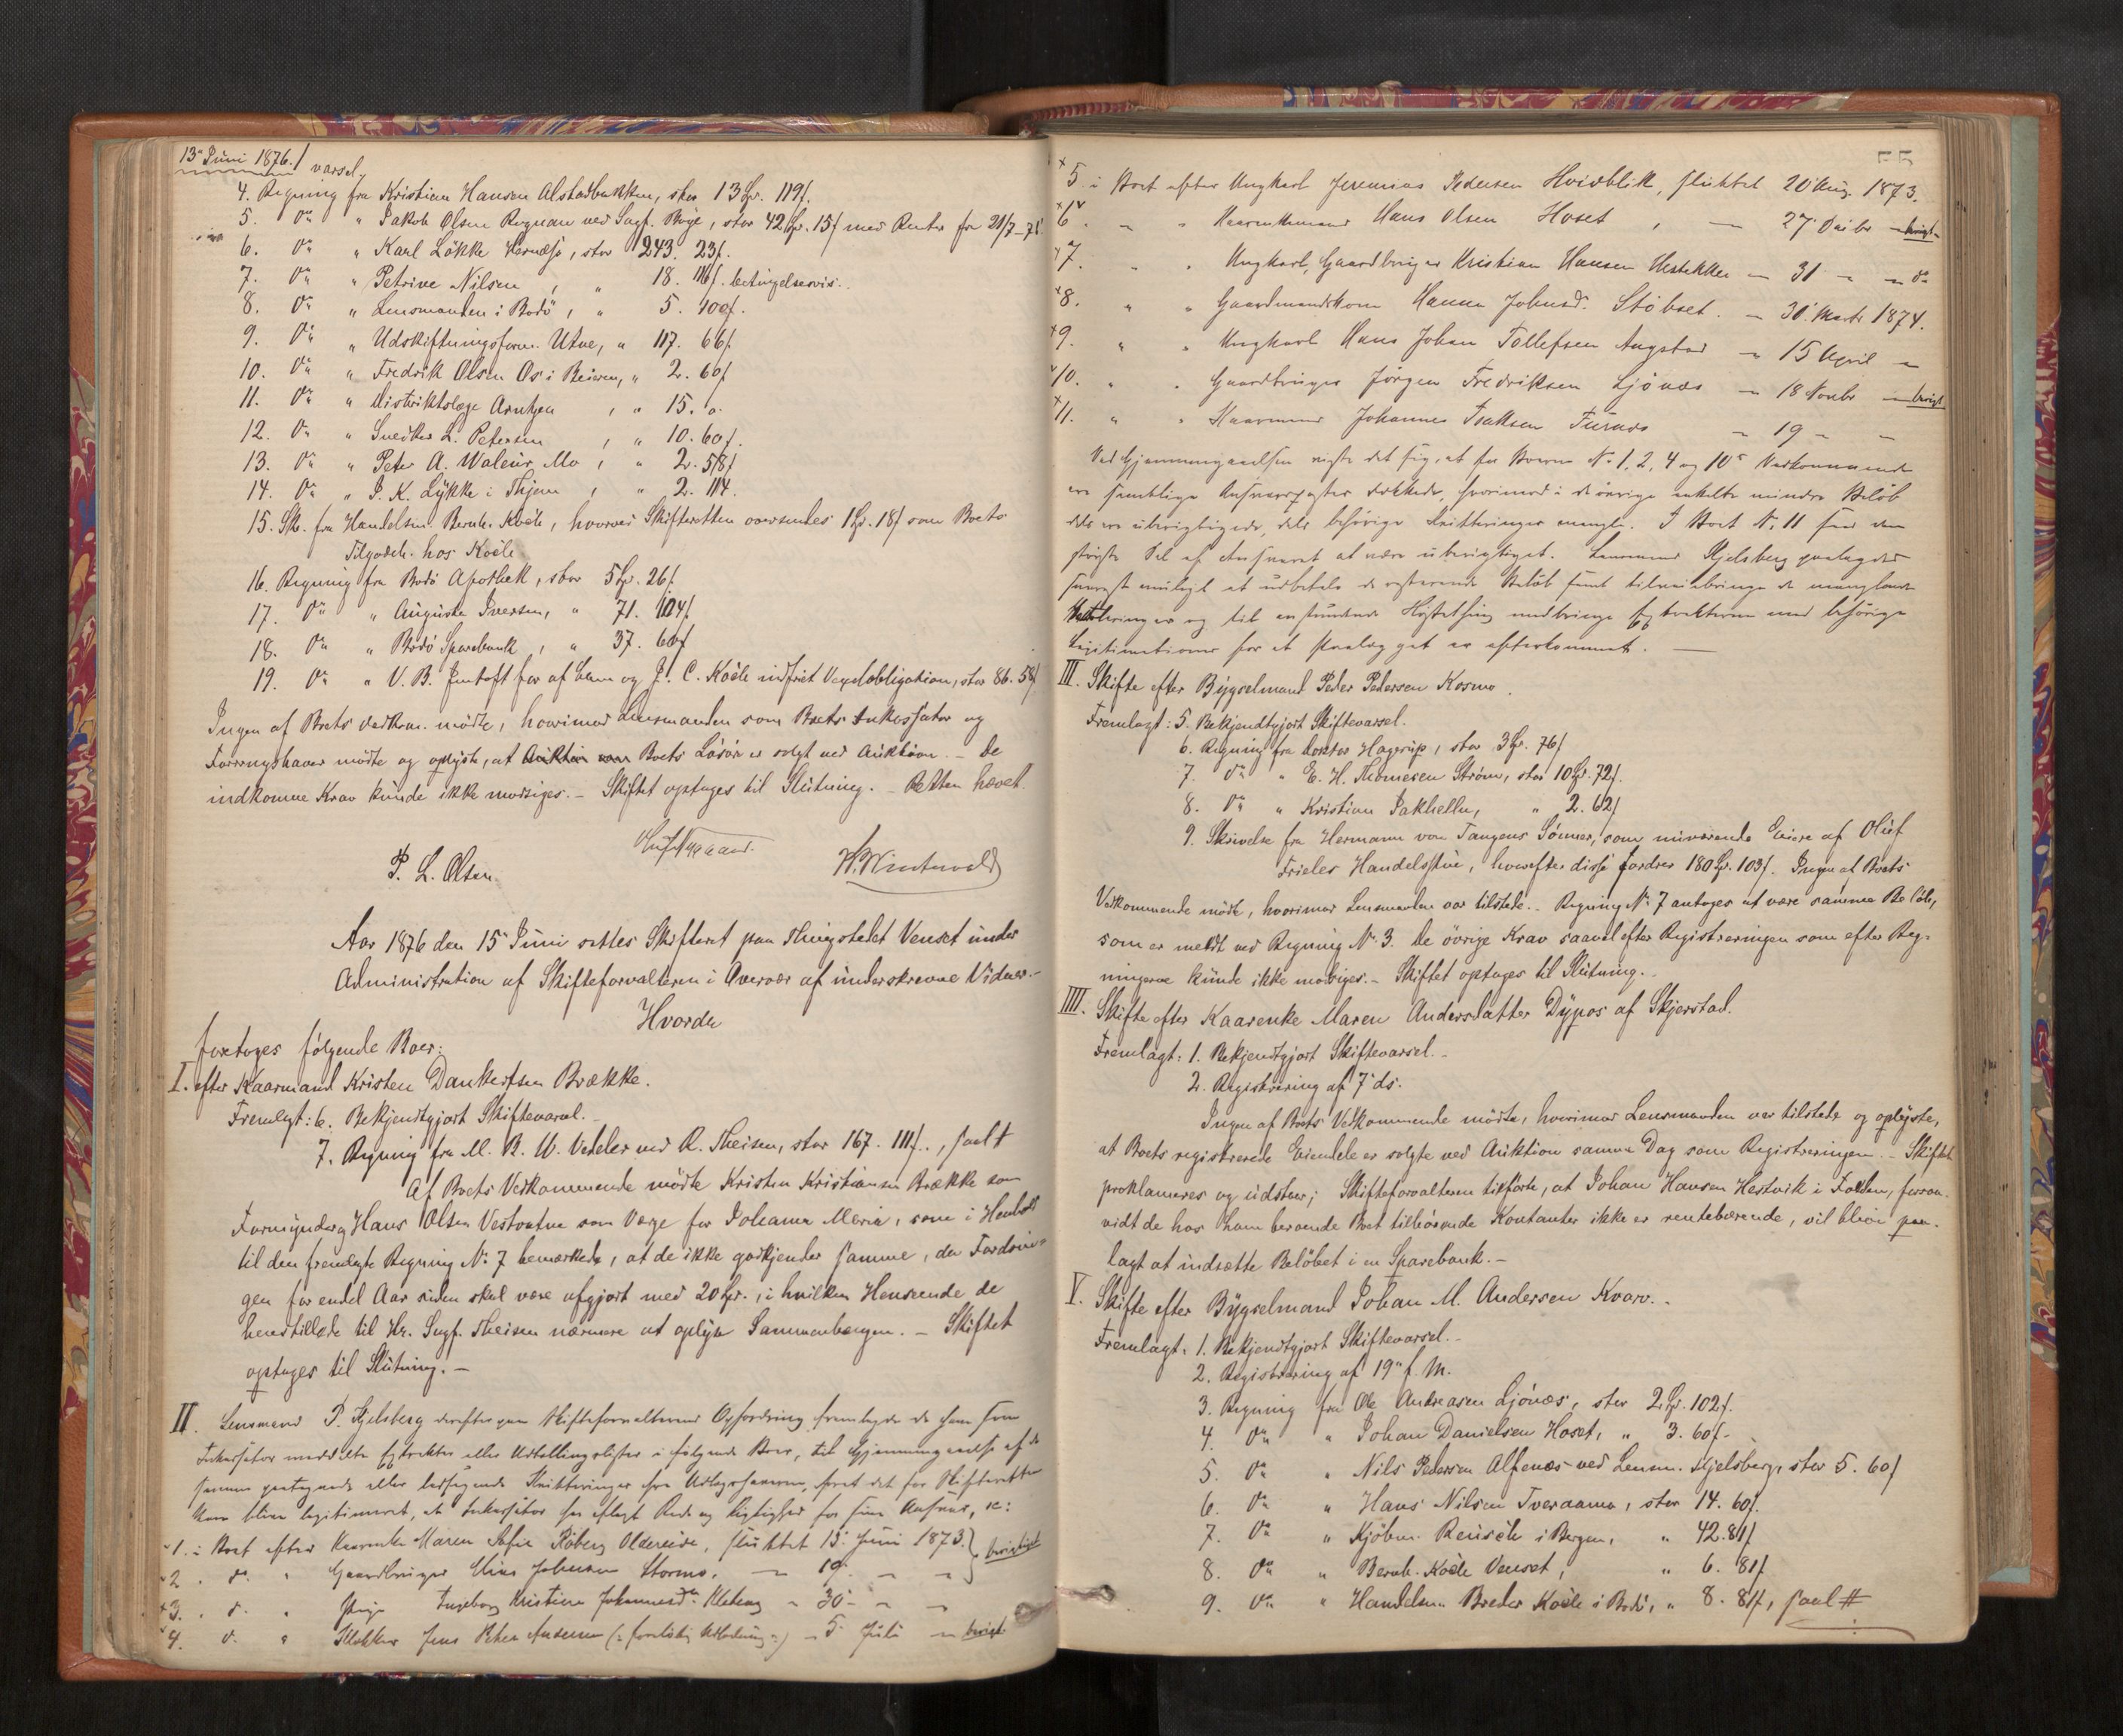 13de Juni 1876.
varsel.
4. Regning fra Kristian Hansen Alstadbakken, stor 13 Sp. 119 f.
5. do " Jakob Olsen Rognan ved Sagf. Boye, stor 42 Sp. 15 f med Renter fra 21/7-75.
6. do " Karl Løkke Hernæsø, stor 243. 23 f.
7. do " Petrine Nilsen , " 18. betingelsesvis.
8. do " Lensmanden i Bodø, " 5. 100 f.
9. do " Udskiftningsform. Utne, " 117. 66 f.
10. do " Fredrik Olsen Os i Beieren, " 2. 60 f
11. do " Distriktslæge Arntzen , " 15. 0.
12. do " Snedker L. Petersen , " 10. 60 f.
13. do " Peter A. Waleur Mo , " 2. 58 f
14. do " J. K. Lykke i Thjem , " 2. 114.
15. Sk. fra Handelsm. Bernh. Koch, hvorved Skifteretten oversendes 1 Sp. 18 f som Boets
Tilgodeh. hos Koch
16. Regning fra Bodø Apothek, stor 5 Sp. 26 f.
17. do " Augusta Iversen, " 71. 104 f.
18. do " Bodø Sparebank , " 37. 60 f
19. do " V. B. Jentoft for af ham og J. C. Koch indfriet Vexelobligation, stor 86. 58 f
Ingen af Boets Vedkom. mødte, hvorimod Lensmanden som Boets Inkassator og
Forretngshaver mødte og oplyste, at Boets Løsøre er solgt ved Auktion. – De
indkomne Krav kunde ikke modsiges. – Skiftet optages til Slutning. – Retten hævet.
P. L. Olsen
Aar 1876 den 15de Juni sattes Skifteret paa Thingstedet Venset under
Administration af Skifteforvalteren i Overvær af underskrevne Vidner. –
Hvorda
foretoges følgende Boer:
I. efter Kaarmand Kristen Dankertsen Brække.
Fremlagt: 6. Bekjendtgjort Skiftevarsel. –
7. Regning fra M. R. U. Vedeler ved R. Theisen, stor 167. 111 f.,
Af Boets Vedkommende mødte Kristen Kristiansen Brække som
Formynder og Hans Olsen Vestvatne som Værge for Johanna Maria, som i Henhold
til den fremlagte Regning No 7 bemærkede, at de ikke godkjender samme, da Fordrin-
gen for endel Aar siden skal være afgjort med 20 Sp., i hvilken Henseende de
henstillede til Hr. Sagf. Theisen nærmere at oplyse Sammenhængen. – Skiftet
optages til Slutning. –
II. Lensmand P. Kjelsberg derefter paa Skifteforvalterens Opfordring fremlagde de ham som
Inkassator meddelte Extrakter eller Udlodningslister i følgende Boer, til Gjennemgaaelse af de
samme paategnede eller ledsagende Kvitteringer fra Udlægshaverne, forat det for Skifteretten
kan blive legitimeret, at Inkassator har aflagt Rede og Rigtighed for sine Ansvar, sc:
1. i Boet efter Maren Sofie Koberg Oldereide, sluttet 13. Juni 1873. berigtiget
2. do " Gaardbruger Johnsen Stormo, – 19. – –
3. do " Pige Ingeborg Kristine – 30 – –
4. do " Klokker Jens Peter Andersen (: foreløbig Udlodning :) – 5 Juli – berigt.
55
5 i Boet efter Ungkarl Jeremias Pedersen Hvidblik, sluttet 20 Aug. 1873.
6. – " Hans Olsen Hoset, – 27 – berigt.
7. " " Ungkarl, Gaardbruger Kristian Hansen – 31 – – do
8. " " Gaardmandskone Hanna Johnsd. Støbset. – 30. Marts 1874.
9. " " Ungkarl Hans Johan Tollefsen Angstad – 15 April –
10. " " Gaardbruger Jørgen Fredriksen Ljønæs – 18 Novbr – berigt
11. " " Kaarmand Johannes Isaksen Furnæs – 19 – –
Ved Gjennemgaaelsen viste det sig, at for Boerne No 1, 2, 4 og 10s Vedkommende
ere samtlige Ansvarsposter dækkede, hvorimod i de øvrige enkelte mindre Beløb
dels ere uberigtigede, dels behørige Kvitteringer mangle. I Boet No 11 sees den
største Del af Ansvaret at være uberigtiget. Lensmand Kjelsberg paalagdes
snarest muligt at udbetale de resterende Beløb samt tilveiebringe de manglende
Kvitteringer og til anstundende Høstething medbringe Extrakterne med behørige
Legitimationer for at Paalægget er efterkommet. –
III. Skifte efter Bygselmand Peder Pedersen Kosmo.
Fremlagt: 5. Bekjendtgjort Skiftevarsel.
6. Regning fra Doktor Hagerup, stor 3 Sp. 76 f
7. do " E. H. Thomesen Strøm, stor 10 Sp. 72 f.
8. do " Kristian Jakhelln, " 2. 62 f
9. Skrivelse fra Hermann von Tangens Sønner, som nuværende Eiere af Oluf
Frieles Handelsstue, hvorefter disse fordrer 180 Sp. 103 f. Ingen af Boets
Vedkommende mødte, hvorimod Lensmanden var tilstede. – Regning No 7 antages at være samme Beløb,
som er meldt ved Regning No 3. De øvrige Krav saavel efter Registreringen som efter Reg-
ningerne kunde ikke modsiges. – Skiftet optages til Slutning. –
IIII. Skifte efter Kaarenke Maren Andersdatter Dypos af Skjerstad.
Fremlagt: 1. Bekjendtgjort Skiftevarsel. –
2. Registrering af 7 ds.
Ingen af Boets Vedkommende mødte, hvorimod Lensmanden var tilstede og oplyste,
at Boets registrerede Eiendele er solgte ved Auktion samme Dag som Registreringen. – Skiftet
proklameres og udstaar; Skifteforvalteren tilførte, at Johan Hansen Hestvik i Folden, forsaa-
vidt de hos ham beroende Boet tilhørende Kontanter ikke er rentebærende, vil blive paa-
lagt at indsætte Beløbet i en Sparebank. –
V. Skifte efter Bygselmand Johan M. Andersen Kvarv. –
Fremlagt: 1. Bekjendtgjort Skiftevarsel. –
2. Registrering af 19de f. M.
3. Regning fra Ole Andreasen Ljønæs, stor 2 Sp. 102 f.
4. do " Johan Danielsen Hoset, " 3. 60 f –
5. do " Nils Pedersen Alfenæs ved Lensm. Kjelsberg, stor 5. 60 f
6. do " Hans Nilsen Tveraamo, stor 14. 60 f.
7. do " Kjøbm. Reusch i Bergen, " 42. 81 f
8. do " Bernh. Koch Venset, " 6. 81 f
9. do " Handelsm. Breder Koch i Bodø, " 8. 81 f,